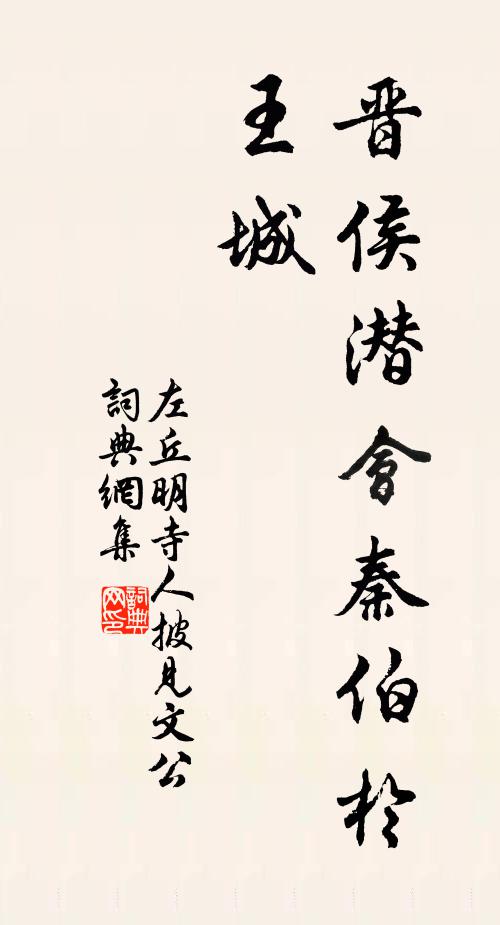 晋侯潜會秦伯於
王城
左丘明寺人披見文公
詞典網集
詞典
网印